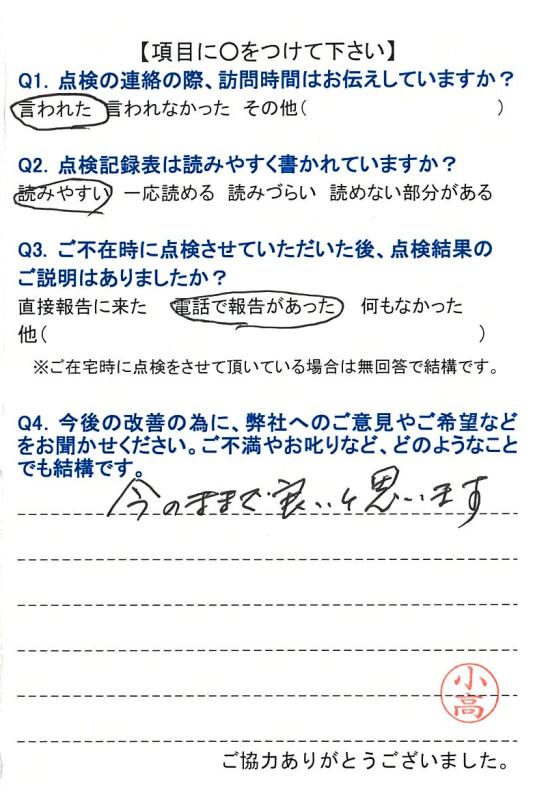 【項目に〇をつけて下さい】
Q1. 点検の連絡の際、訪問時間はお伝えしていますか？
言われた 言われなかった その他( )
Q2. 点検記録表は読みやすく書かれていますか？
読みやすい 一応読める 読みづらい 読めない部分がある
Q3. ご不在時に点検させていただいた後、点検結果の
ご説明はありましたか？
直接報告に来た 電話で報告があった 何もなかった
他( )
※ご在宅時に点検をさせて頂いている場合は無回答で結構です。
Q4. 今後の改善の為に、弊社へのご意見やご希望など
をお聞かせください。ご不満やお叱りなど、どのようなこと
でも結構です。
今のままで良いと思います
小高
ご協力ありがとうございました。